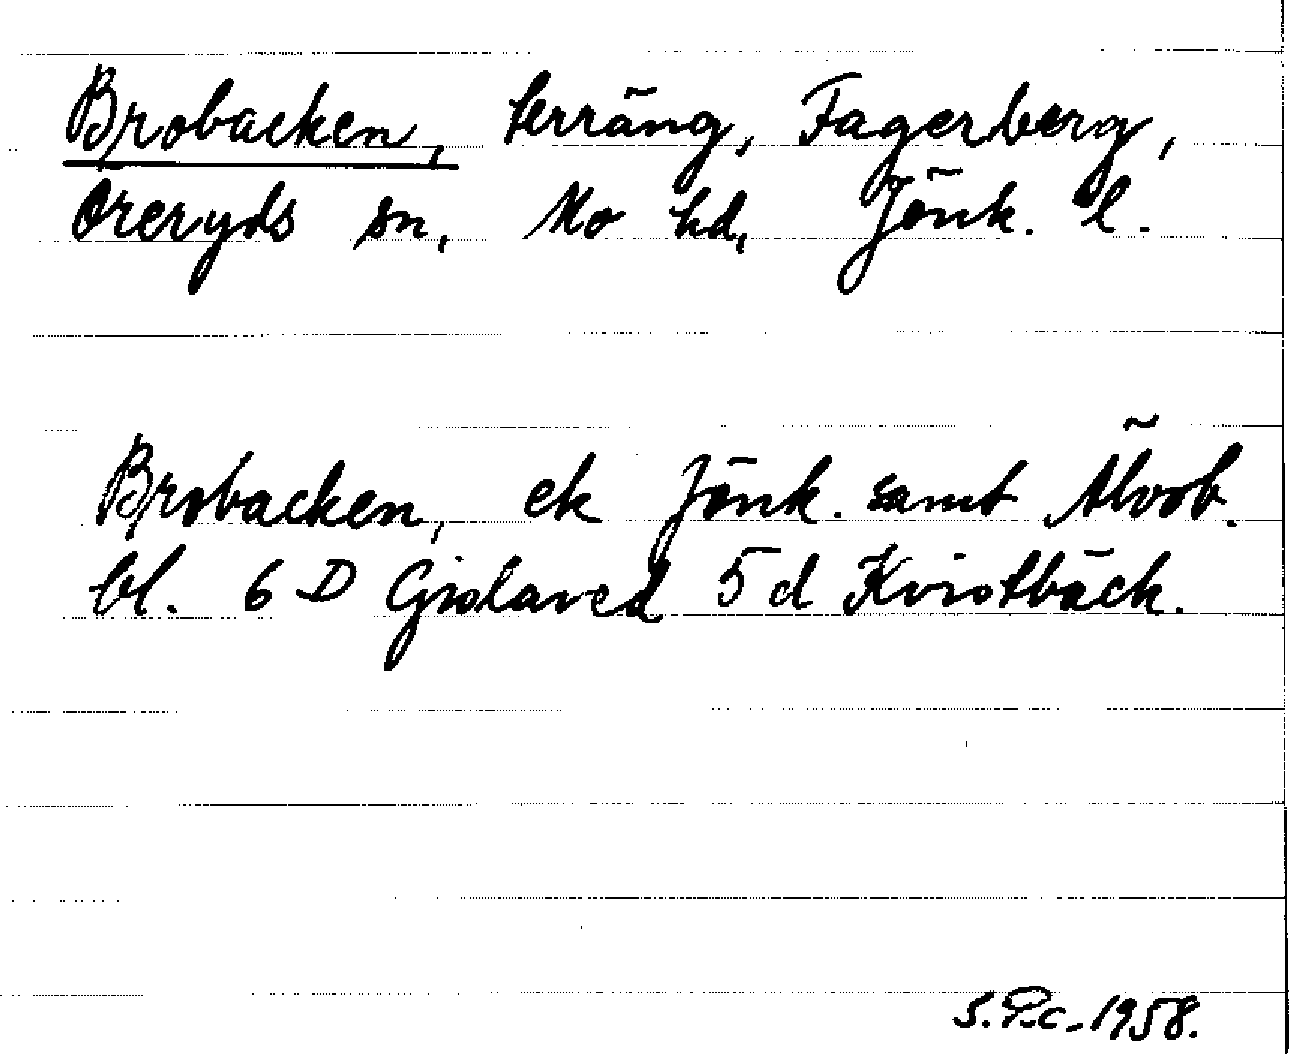 Brobacken, terräng, Fagerberg,
Öreryds sn, Mo hd, Jönk. l.
Brobacken, ek Jönk. samt Älvsb.
bl. 6 D Gislaved 5 d Kvistbäck.
1958.